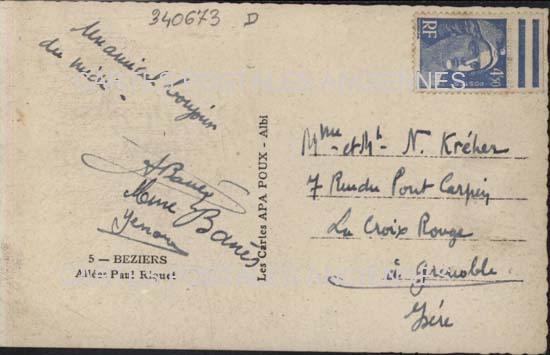 340673 D
Un amical bonjour
du midi -
Mme Banès
5 — BEZIERS
Allées Paul Riquet
Les Cartes APA POUX - Albi
RF
4F50
Mme et Mr N. Krécher
7 Rue du Pont Carpin
La Croix Rouge
à Grenoble
Isère